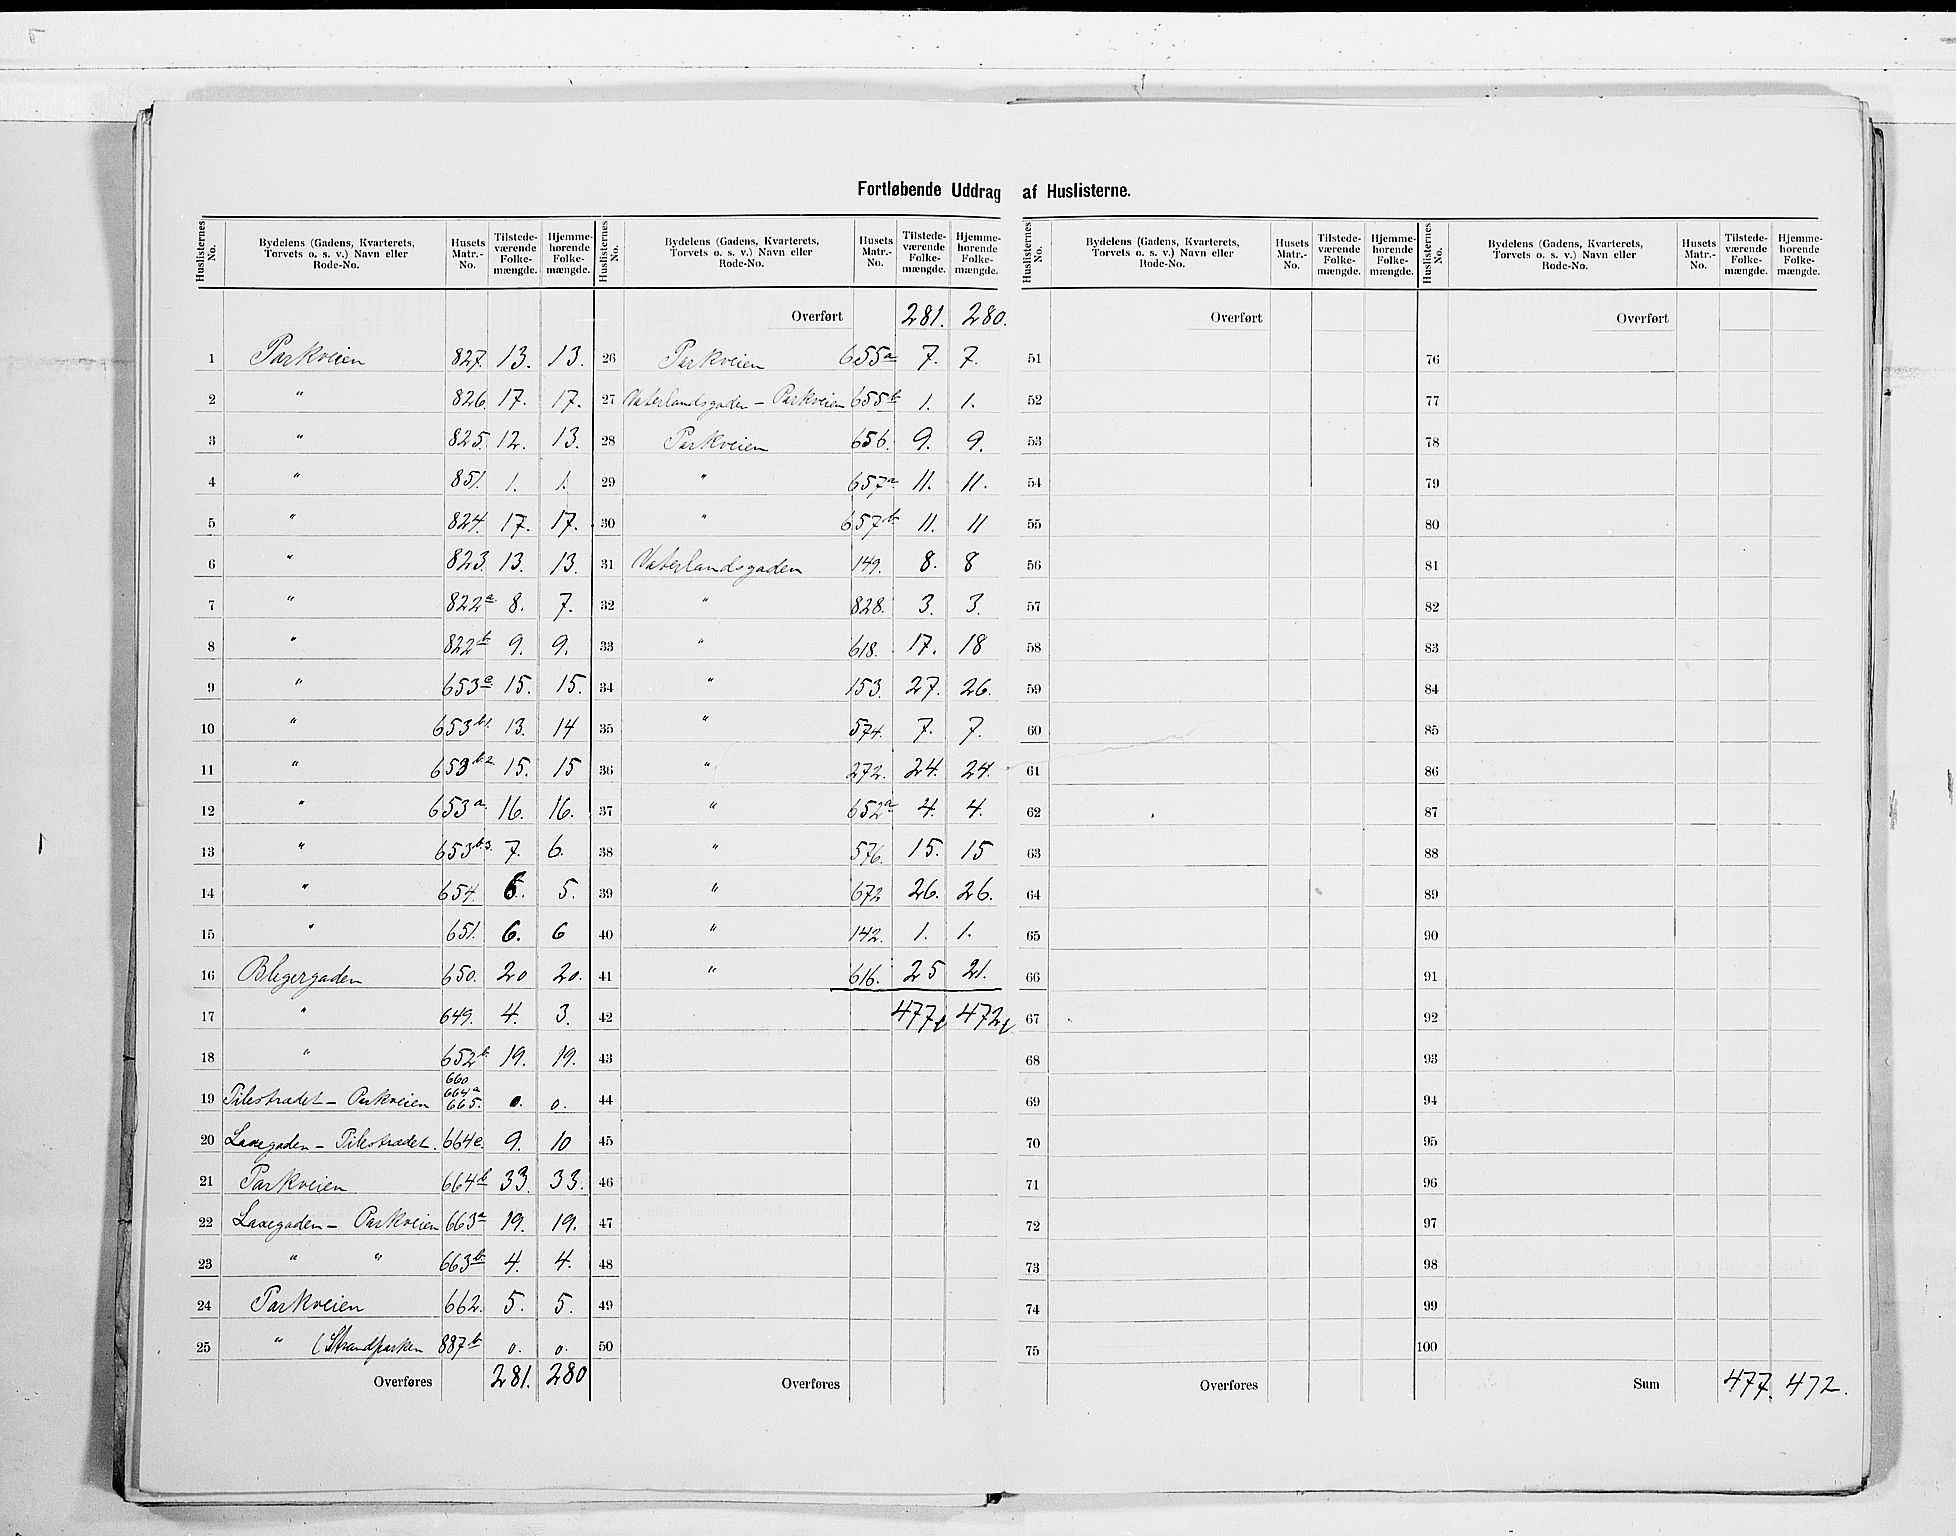 Fortløbende Uddrag af Huslisterne.
Huslisternes No. Bydelens (Gadens, Kvarterets, Torvets o. s. v.) Navn eller Rode-No. Husets Matr.-No. Tilstedeværende Folkemængde. Hjemmehørende Folkemængde.
1 Parkveien 827. 13. 13.
2 " 826. 17. 17.
3 " 825. 12. 13.
4 " 851. 1. 1.
5 " 824. 17. 17.
6 " 823. 13. 13.
7 " 822a. 8. 7.
8 " 822b 9. 9.
9 " 653c. 15. 15.
10 " 653b1. 13. 14
11 " 653b.2. 15. 15
12 " 653a. 16. 16.
13 " 653b.3. 7. 6.
14 " 654. 6. 5.
15 " 651. 6. 6
16 Blegergaden 650. 20 20.
17 " 649. 4. 3.
18 " 652b. 19. 19.
19 Pilestrædet - Parkveien 660 664a 665. 0. 0.
20 Laxegaden - Pilestrædet. 664c. 9. 10
21 Parkveien 664b 33. 33.
22 Laxegaden - Parkveien 663a 19. 19.
23 " " 663b 4. 4.
24 Parkveien 662. 5. 5.
25 " (Strandparken 887b 0. 0.
Overføres 281. 280
Huslisternes No. Bydelens (Gadens, Kvarterets, Torvets o. s. v.) Navn eller Rode-No. Husets Matr.-No. Tilstedeværende Folkemængde. Hjemmehørende Folkemængde.
Overført 281. 280.
26 Parkveien 655a 7. 7.
27 Vaterlandsgaden - Parkveien 655b 1. 1.
28 Parkveien 656. 9. 9.
29 " 657a. 11. 11.
30 " 657b. 11. 11
31 Vaterlandsgaden 149. 8. 8
32 " 828. 3. 3.
33 " 618. 17. 18
34 " 153. 27. 26.
35 " 574. 7. 7.
36 " 272. 24. 24.
37 " 652a 4. 4.
38 " 576. 15. 15
39 " 672 26. 26.
40 " 142. 1. 1.
41 " 616. 25 21.
42 477 472
43
44
45
46
47
48
49
50
Overføres
Huslisternes No. Bydelens (Gadens, Kvarterets, Torvets o. s. v.) Navn eller Rode-No. Husets Matr.-No. Tilstedeværende Folkemængde. Hjemmehørende Folkemængde.
Overført
51
52
53
54
55
56
57
58
59
60
61
62
63
64
65
66
67
68
69
70
71
72
73
74
75
Overføres
Huslisternes No. Bydelens (Gadens, Kvarterets, Torvets o. s. v.) Navn eller Rode-No. Husets Matr.-No. Tilstedeværende Folkemængde. Hjemmehørende Folkemængde.
Overført
76
77
78
79
80
81
82
83
84
85
86
87
88
89
90
91
92
93
94
95
96
97
98
99
100
Sum 477. 472.